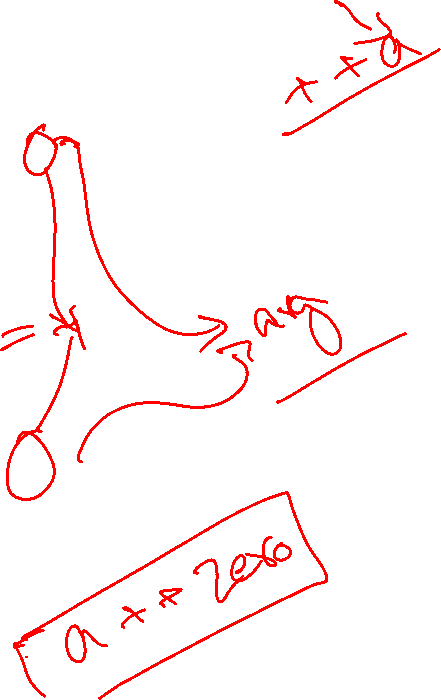 ++a
arg
a ++ zero